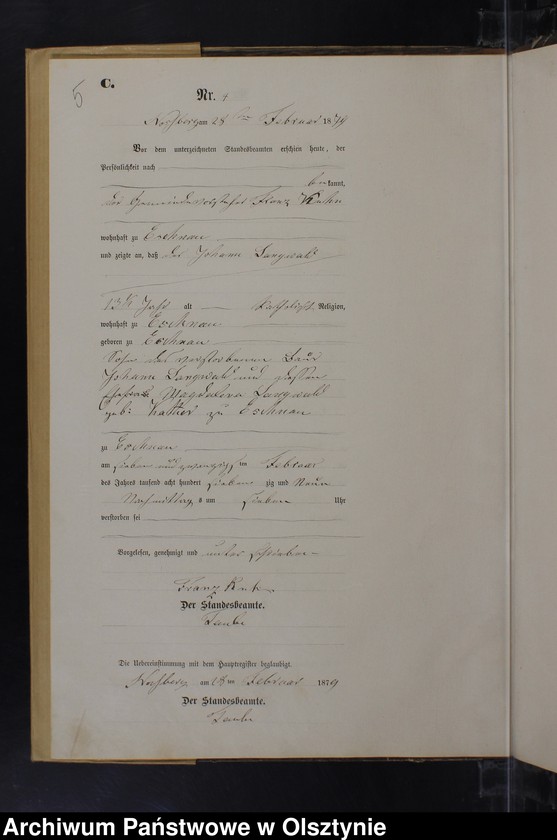 5
C.
Nr. 4
am 28ten Februar 1879
Vor dem unterzeichneten Standesbeamten erschien heute, der
Persönlichkeit nach
bekannt,
der Gemeindevorsteher Franz Kuhn
wohnhaft zu Eschnau
und zeigte an, daß der Johann Langwald
13 ½ Jahr alt katholischer Religion,
wohnhaft zu Eschnau
geboren zu Eschnau
Sohn des verstorbenen Bauer
Johann Langwald und dessen
Ehefrau Magdalena Langwald
geb: zu Eschnau
zu Eschnau
am sieben und zwanzigsten Februar
des Jahres tausend acht hundert siebenzig und Neun
Nachmittags um sieben Uhr
verstorben sei
Vorgelesen, genehmigt und unterschrieben
Franz Kuhn
Der Standesbeamte.
Die Uebereinstimmung mit dem Hauptregister beglaubigt.
am 28ten Februar 1879
Der Standesbeamte.
Archiwum Państwowe w Olsztynie